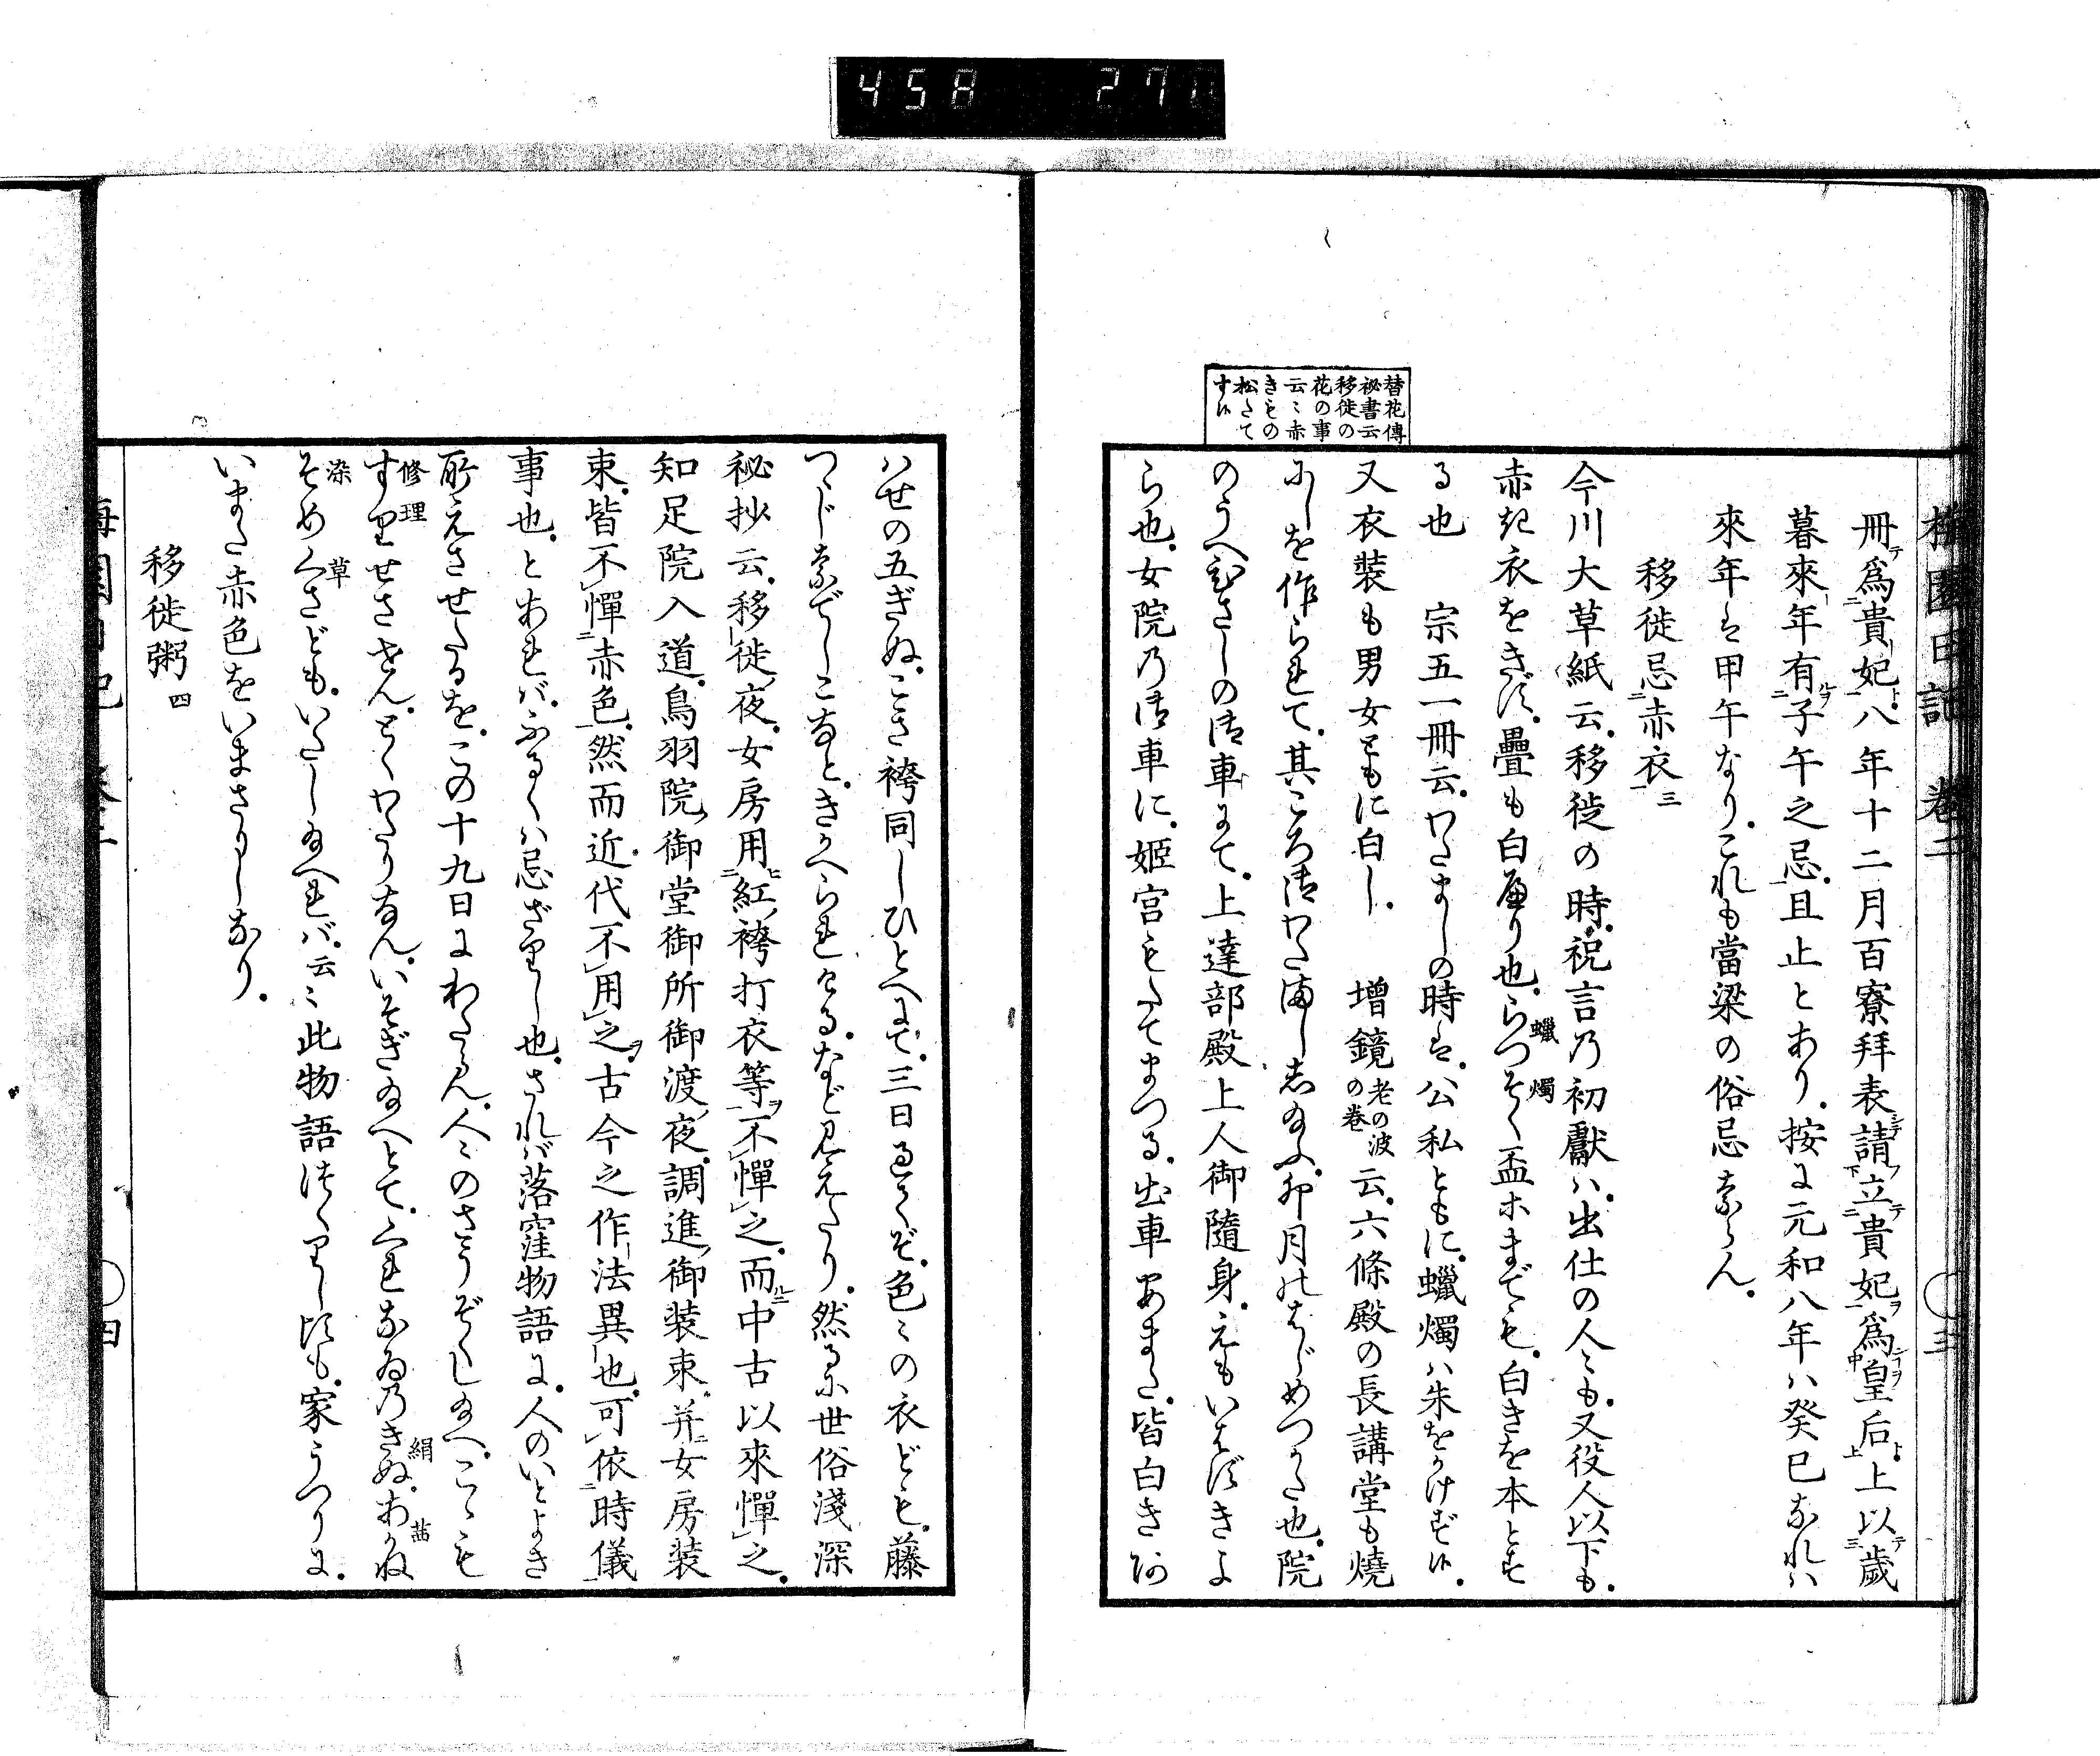 458 271
梅園日記 卷二 〇三
冊爲貴妃八年十二月百寮拜表請立貴妃爲皇后上以歲
暮來年有子午之忌且止とあり按に元和八年ハ癸巳なれハ
來年は甲午なりこれも當梁の俗忌ならん
移徙忌赤衣三
今川大草紙云移徙の時祝言乃初獻ハ出仕の人ゝも又役人以下も
赤き衣をきず疊も白縁り也らつそく盃ホまでも白きを本とす
蠟燭
る也 宗五一冊云わたましの時は公私ともに蠟燭ハ朱をかけず候
又衣裝も男女ともに白し 増鏡老の波の巻云六條殿の長講堂も燒
にしを作られて其ころ御わたましし給ふ卯月のはじめつかた也院
のうへひさしの御車にて上達部殿上人御隨身えもいはずきよ
ら也女院乃御車に姫宮もたてまつる出車あまた皆白きあ
替花傳
祕書云
移徙の
花の事
云ゝ赤
きものハ
松たて
す候
ハせの五ぎぬこき袴同しひとへにて三日過てぞ色ゝの衣ども藤
つゝじなでしこなときかへられけるなど見えたり然るに世俗淺深
祕抄云移徙夜女房用紅袴打衣等不憚之而中古以來憚之
知足院入道鳥羽院御堂御所御渡夜調進御裝束并女房裝
束皆不憚赤色然而近代不用之古今之作法異也可依時儀
事也とあれバふるくハ忌ざりし也されバ落窪物語に人のいとよき
所えさせたるをこの十九日にわたらん人ゝのさうぞくし給へこゝも
すりせさせんとくわたりなんいそぎ給へとてくれなゐ乃きぬあかね
修理
絹
茜
そめくさどもいたし給へれバ云ゝ此物語は
染
草
家うつりに
いまた赤色をいまさりしなり
移徙粥四